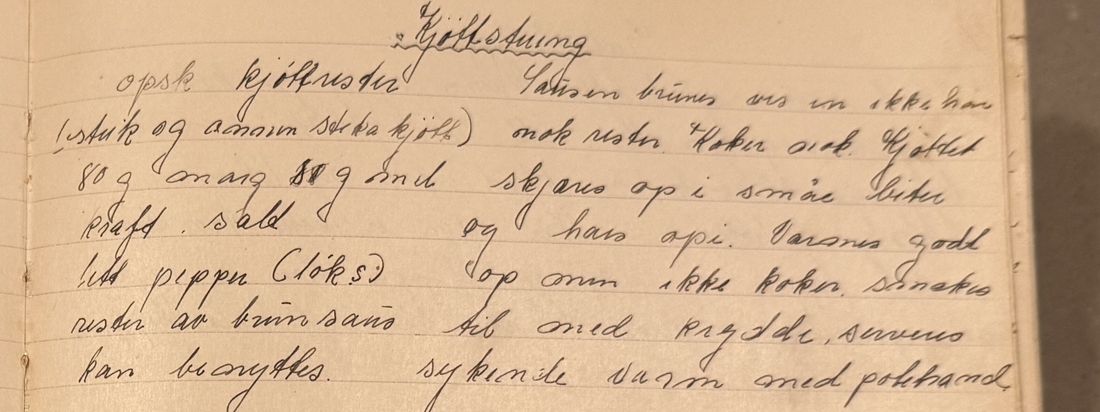 Kjøttstuing
opsk kjøttrester
(steik og annen steka kjøtt)
80 g marg 80 g mel
kraft. salt
litt pepper (løks)
rester av brun saus
kan benyttes.
Sausen brunes vis en ikke har
nok rester. Koker nok. Kjøttet
skjæres op i småe biter
og haes opi. Varmes godt
op men ikke koker. smakes
til med krydde, serveres
sykende varm med potetrand.